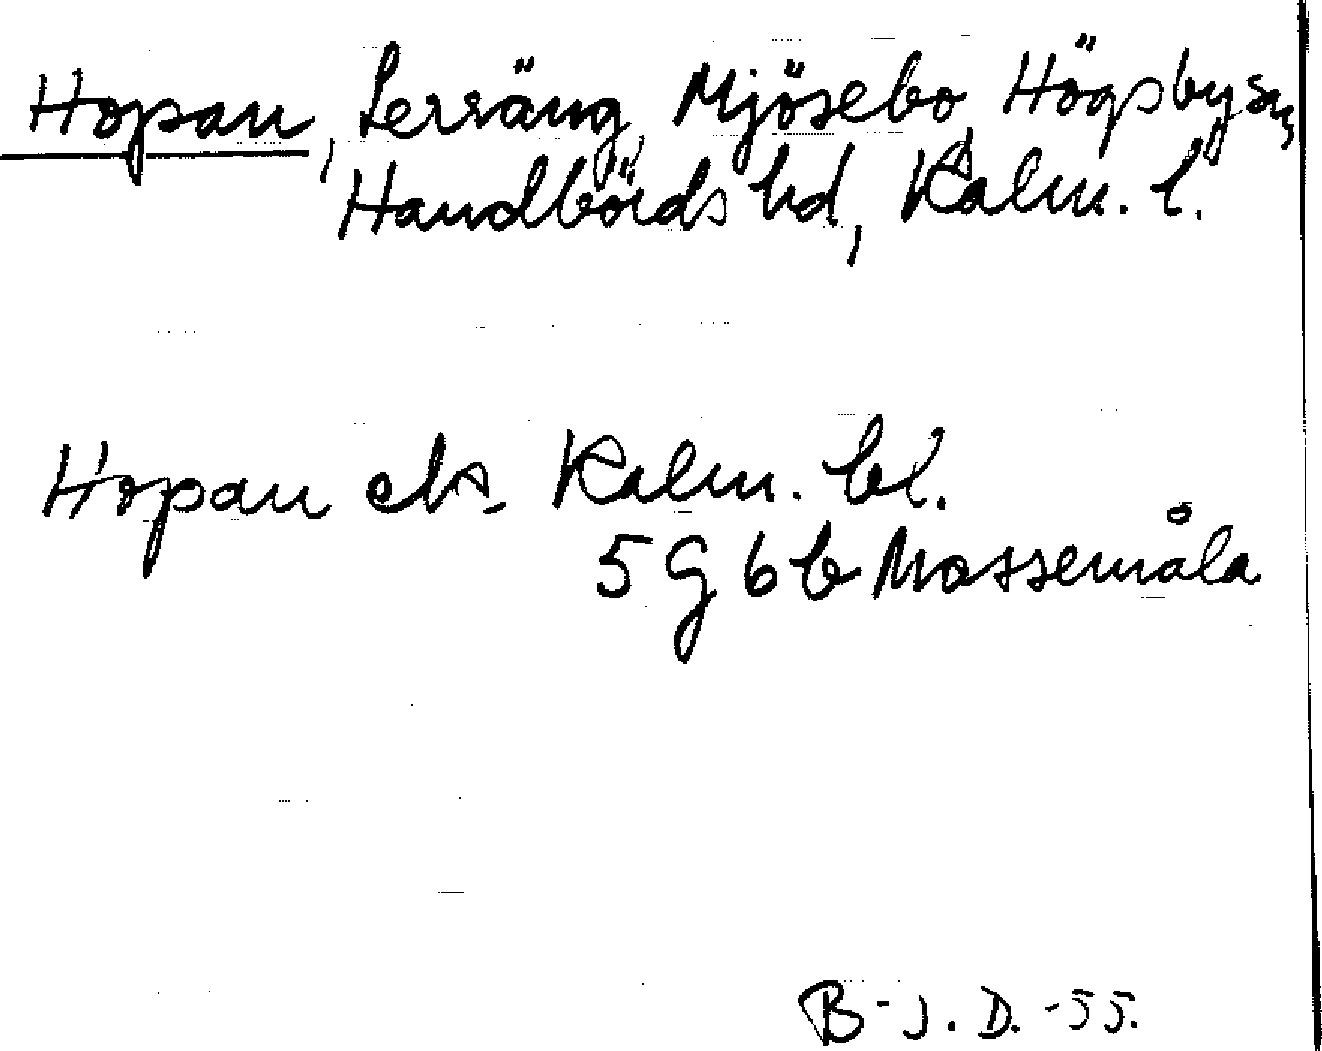 Hopan, Lerräng, Mjösebo, Högsby sn,
Handbörds hd, Kalm. l.
Hopan ebs. Kalm. bl.
5 G 6 b Mossemåla
B-J. D. -55.